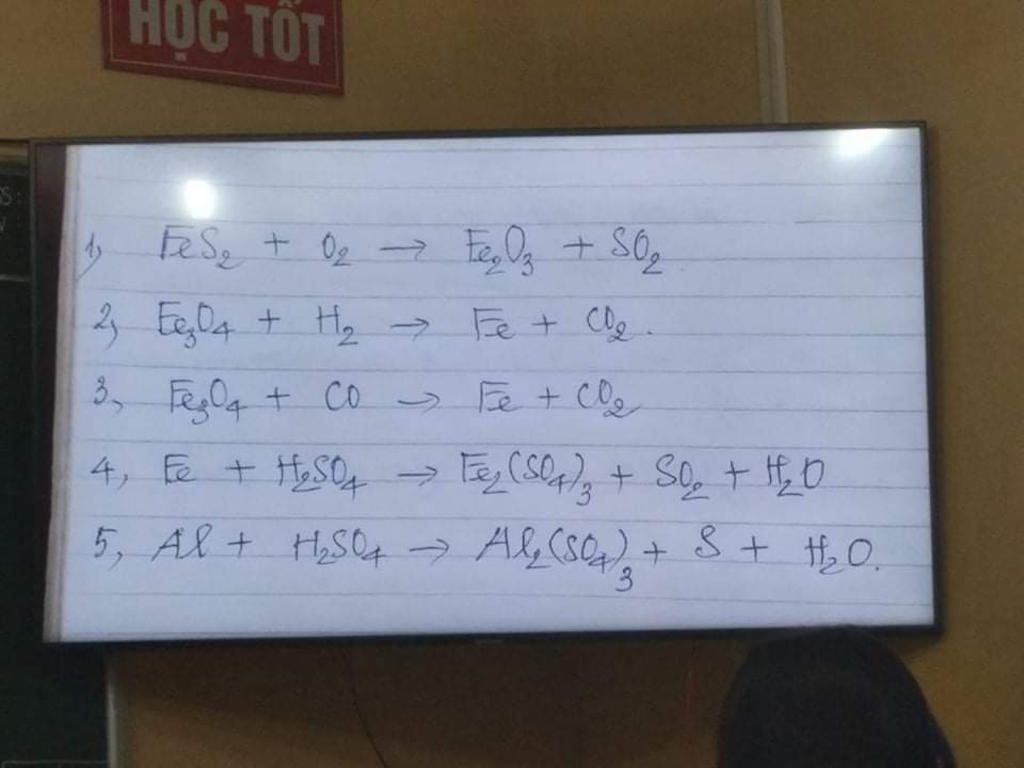 HỌC TỐT
1, FeS₂ + O₂ → Fe₂O₃ + SO₂
2, Fe₃O₄ + H₂ → Fe + CO₂.
3, Fe₃O₄ + CO → Fe + CO₂
4, Fe + H₂SO₄ → Fe₂(SO₄)₃ + SO₂ + H₂O
5, Al + H₂SO₄ → Al₂(SO₄)₃ + S + H₂O.